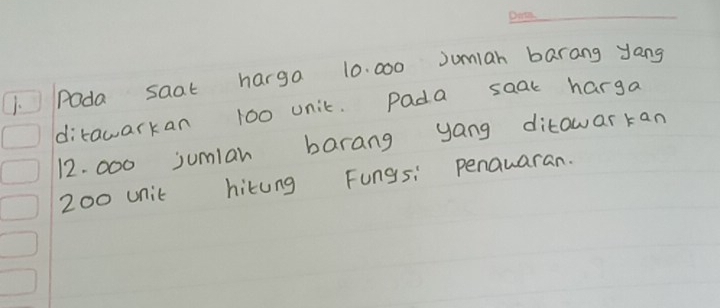 Date.
1. Pada saat harga 10.000 jumlah barang yang
ditawarkan 100 unit. Pada saat harga
12.000 jumlah barang yang ditawarkan
200 unit hitung Fungsi penawaran.